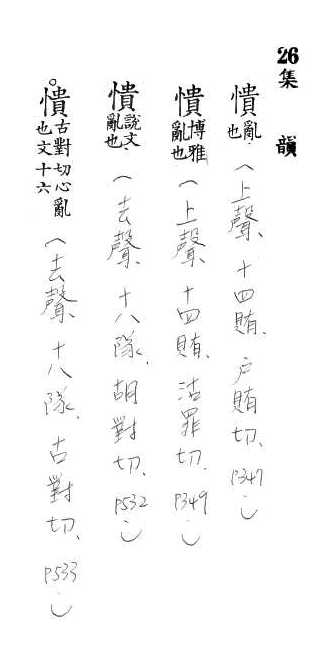 26集 韻
憒亂也(上聲、十四賄、戶賄切、P347)
憒博雅亂也(上聲、十四賄、沽罪切、P349)
憒說文、亂也(去聲、十八隊、胡對切、P532)
。憒古對切心亂也文十六(去聲、十八隊、古對切、P533)